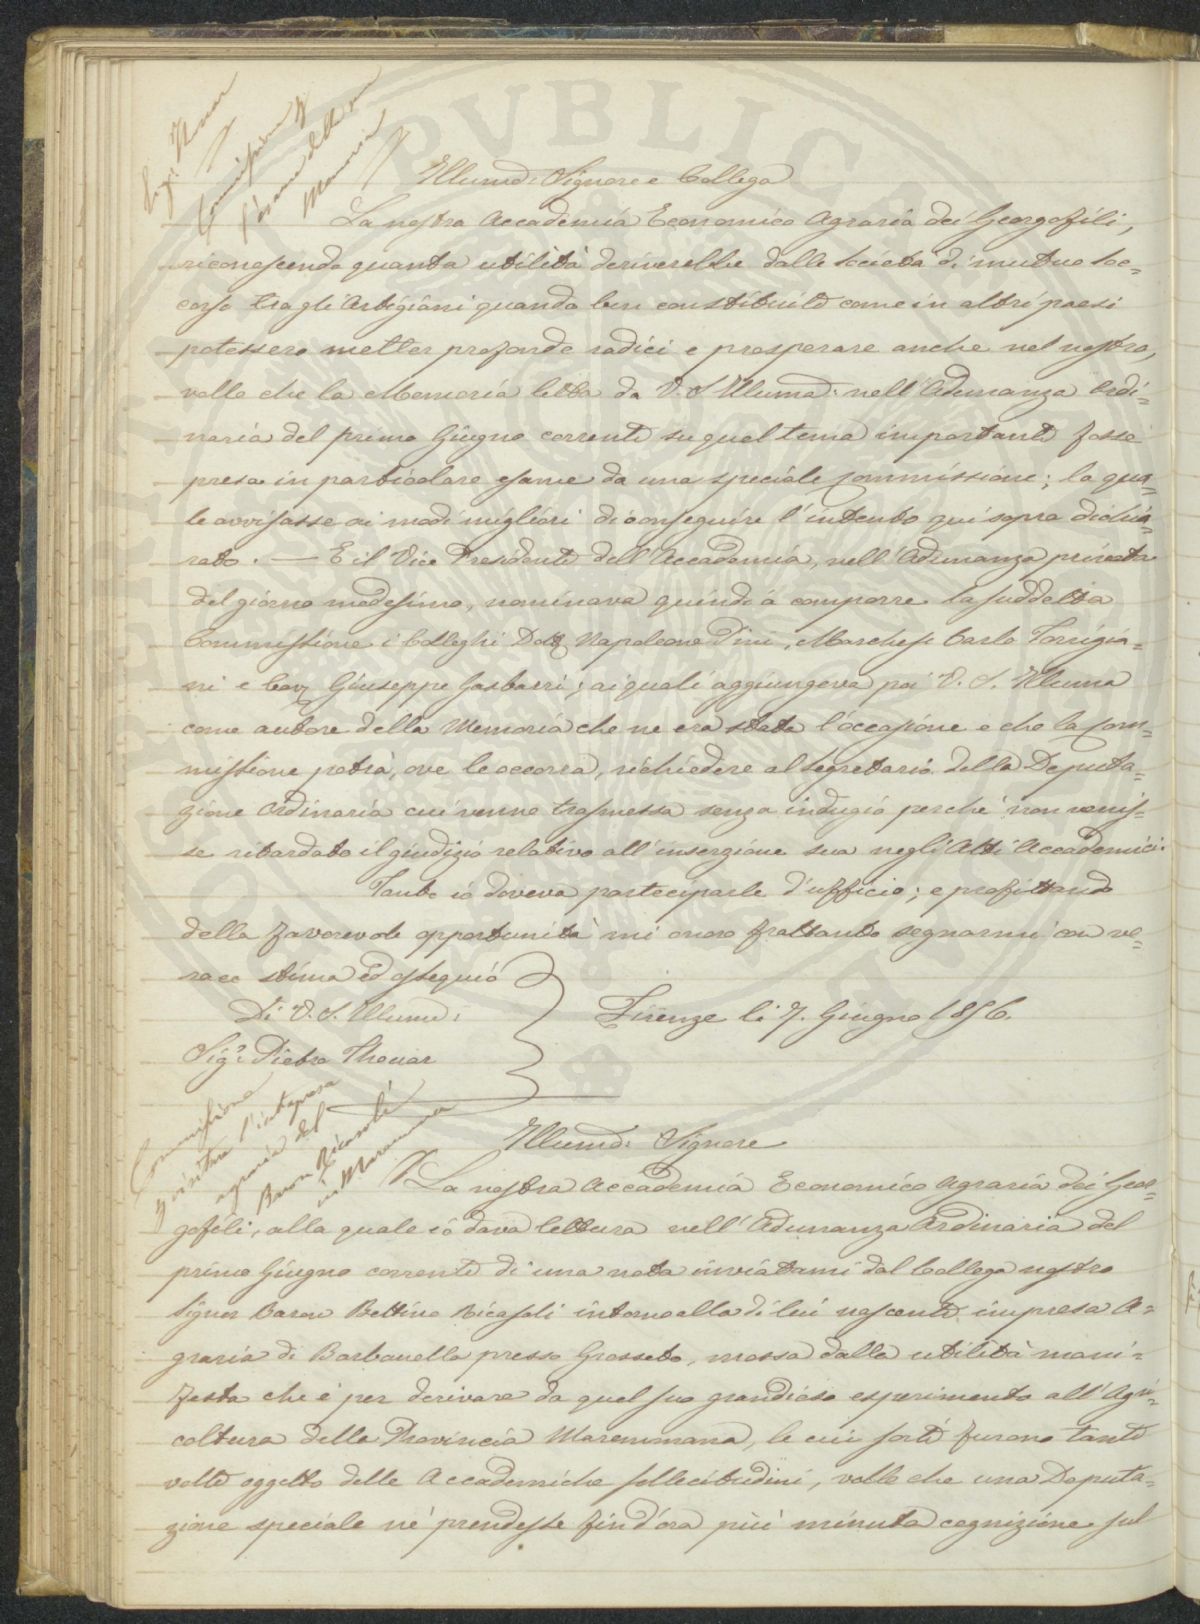 Sig. Thouar
Commissione p.
l'esame della sua
Memoria
Illumo: Signore e Collega
La nostra Accademia Economico Agraria dei Georgofili,
riconoscendo quanta utilità deriverebbe dalle Società di mutuo Soc=
corso tra gli Artigiani quando ben constituite come in altri paesi
potessero metter profonde radici e prosperare anche nel nostro,
volle che la Memoria letta da V. S. Illuma: nell'Adunanza Ordi=
naria del primo Giugno corrente su quel tema importante fosse
presa in particolare esame da una speciale Commissione; la qua=
le avvisasse ai modi migliori di conseguire l'intento qui sopra dichia=
rato. — E il Vice Presidente dell'Accademia, nell'Adunanza privata
del giorno medesimo, nominava quindi a comporre la suddetta
Commissione i Colleghi Dott. Napoleone Pini, Marchese Carlo Torrigia=
ni e Cav. Giuseppe Gasbarri; ai quali aggiungeva poi V. S. Illuma
come autore della Memoria che ne era stata l'occasione e che la Com=
missione potrà, ove le occorra, richiedere al Segretario della Deputa=
zione Ordinaria cui venne trasmessa senza indugio perchè non venis=
se ritardato il giudizio relativo all'inserzione sua negli Atti Accademici.
Tanto io doveva partecipare d'ufficio; e profittando
della favorevole opportunità mi onoro frattanto segnarmi con ve=
race stima ed ossequio
Di V. S. Illuma:
Firenze li 7. Giugno 1856.
Sigr. Pietro Thouar
Commissione
p visitare l'intrapresa
agraria del
Baron Ricasoli
in Maremma
Illumo: Signore
La nostra Accademia Economico Agraria dei Geor=
gofili, alla quale io dava lettura nell'Adunanza Ordinaria del
primo Giugno corrente di una nota inviatami dal Collega nostro
Signor Baron Bettino Ricasoli intorno alla di lui nascente impresa A=
graria di Barbanella presso Grosseto, mossa dalla utilità mani=
festa che è per derivare da quel suo grandioso esperimento all'Agri=
coltura della Provincia Maremmana, le cui sorti furono tante
volte oggetto delle Accademiche sollecitudini, volle che una Deputa=
zione speciale ne prendesse fin d'ora più minuta cognizione sul
PVBLICA